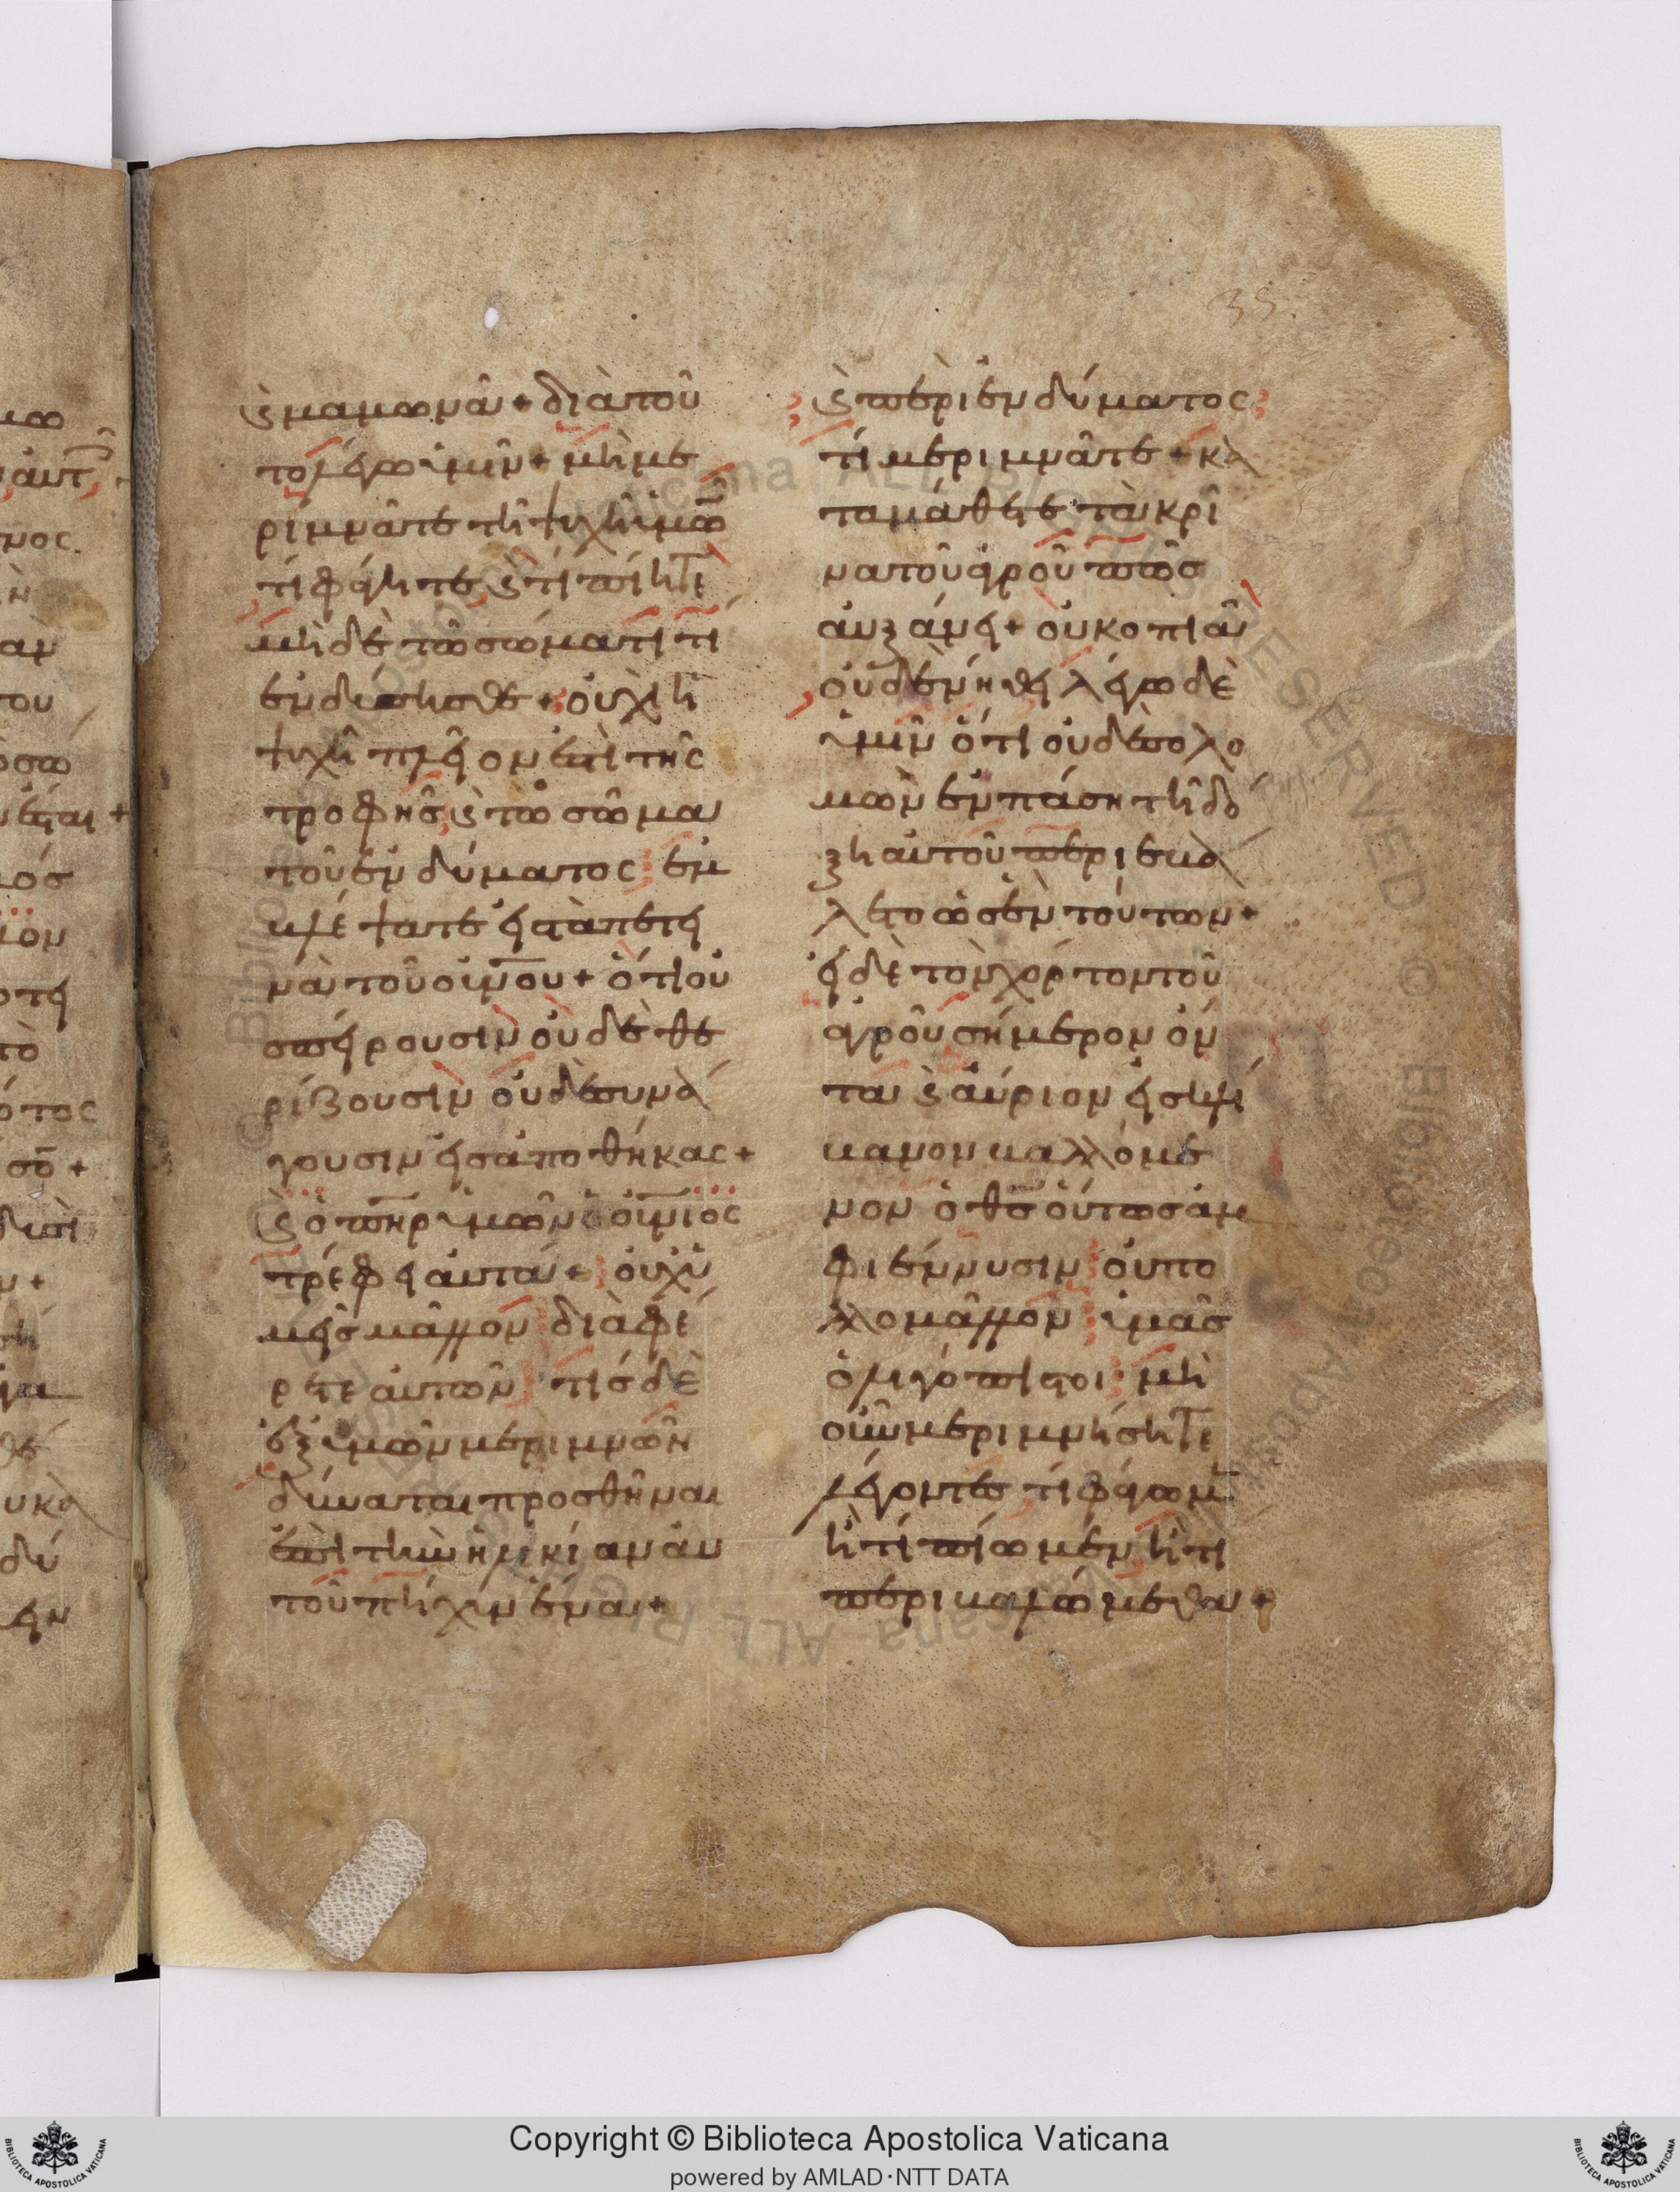 35.
ϛ̀ μαμωνᾶ + διὰ τοῦ
το λέγω ὑμῖν + μὴ με
ριμνᾶτε τῇ ψυχῇ ὑμῶ̅
τί φάγητε ϛ̀ τί πίητε
μὴ δὲ τῶ σώματι τί
ἐνδύσησθε + οὐχὶ ἡ
ψυχὴ πλεῖον ἐστὶ τῆς
τροφῆς ϛ̀ τὼ σῶμα
τοῦ ἐνδύματος ἐμ
βλέψατε εἰς τὰ πετει
νὰ τοῦ οὐν̅ου + ὅτι οὐ
σπείρουσιν οὐδὲ θε
ρίζουσιν οὐδὲ συνά
γουσιν εἰς ἀποθήκας +
ϛ̀ ὁ πη̅ρ ὑμῶν ὁ οὐν̅ιος
τρέφει αὐτά + οὐχ ὑ
μεῖς μᾶλλον διαφέ
ρετε αὐτῶν τίς δὲ
ἐξ ὑμῶν μεριμνῶν
δύναται προσθῆναι
ἐπὶ τὴν ἡλικίαν αὐ
τοῦ πήχυν ἕνα +
ϛ̀ περὶ ἐνδύματος
τί μεριμνᾶτε + κα
ταμάθετε τὰ κρί
να τοῦ ἀγροῦ πῶς
αὐξάνει + οὐ κοπιᾶ
οὐδὲ νήθει λέγω δὲ
ὑμῖν ὅτι οὐδὲ σολο
μὼν ἐν πάση τῇ δό
ξη αὐτοῦ περιεβά
λετο ὡς ἓν τούτων +
εἰ δὲ τὸν χόρτον τοῦ
ἀγροῦ σήμερον ὄν
τα ϛ̀ αὔριον εἰς κλί
βανον βαλλόμε
νον ὁ θ̅ς οὕτως ἀμ
φιέννυσιν οὐ πο
λλὸ μᾶλλον ὑμᾶς
ὀλιγόπιστοι μὴ
οὖν μεριμνήσητε
λέγοντες τί φάγωμε̅
ἢ τί πίωμεν ἢ τί
περιβαλώμεθα +